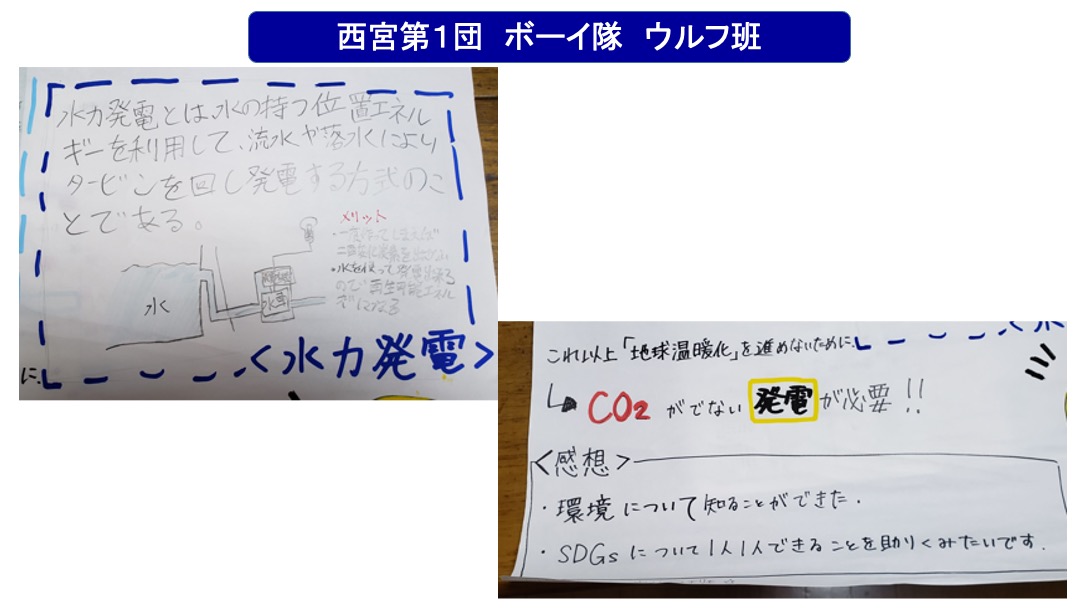 西宮第１団　ボーイ隊　ウルフ班
水力発電とは水の持つ位置エネル
ギーを利用して、流水や落水により
タービンを回し発電する方式のこ
とである。
メリット
・一度作ってしまえば
二酸化炭素を出さない
・水を使って発電出来る
ので再生可能エネル
ギーになる
水
発電機
水車
＜水力発電＞
に、
これ以上「地球温暖化」を進めないために、
CO₂がでない発電が必要!!
＜感想＞
・環境について知ることができた.
・SDGsについて1人1人できることを取りくみたいです.